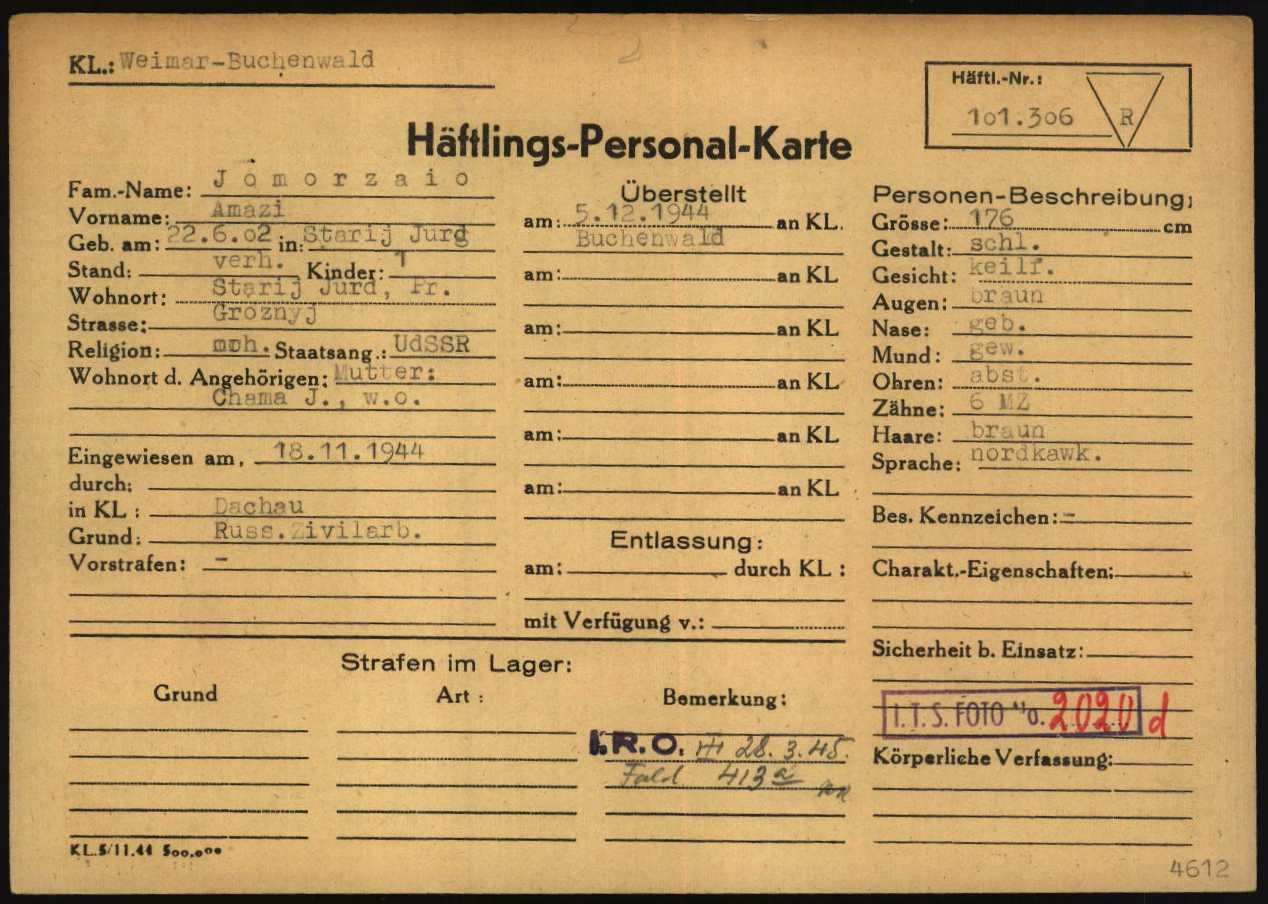 KL.: Weimar-Buchenwald
Häftl.-Nr.:
101.306 R
Häftlings-Personal-Karte
Fam.-Name: Jomorzaio
Vorname: Amazi
Geb. am: 22.6.02 in: Starij Jurg
Stand: verh. Kinder: 1
Wohnort: Starij Jurd, Pr.
Strasse: Groznyj
Religion: moh. Staatsang.: UdSSR
Wohnort d. Angehörigen: Mutter:
Chama J., w.o.
Eingewiesen am, 18.11.1944
durch:
in KL : Dachau
Grund: Russ.Zivilarb.
Vorstrafen: -
Überstellt
am: 5.12.1944 an KL.
Buchenwald
am: an KL
am: an KL
am: an KL
am: an KL
am: an KL
Entlassung:
am: durch KL :
mit Verfügung v.:
Personen-Beschreibung:
Grösse: 176 cm
Gestalt: schl.
Gesicht: keilf.
Augen: braun
Nase: geb.
Mund: gew.
Ohren: abst.
Zähne: 6 MZ
Haare: braun
Sprache: nordkawk.
Bes. Kennzeichen: -
Charakt.-Eigenschaften:
Sicherheit b. Einsatz:
I.T.S. FOTO No. 2020 d
Körperliche Verfassung:
Strafen im Lager:
Grund Art : Bemerkung:
I.R.O. III 28.3.45.
413a
KL.5/11.44 500.000
4612